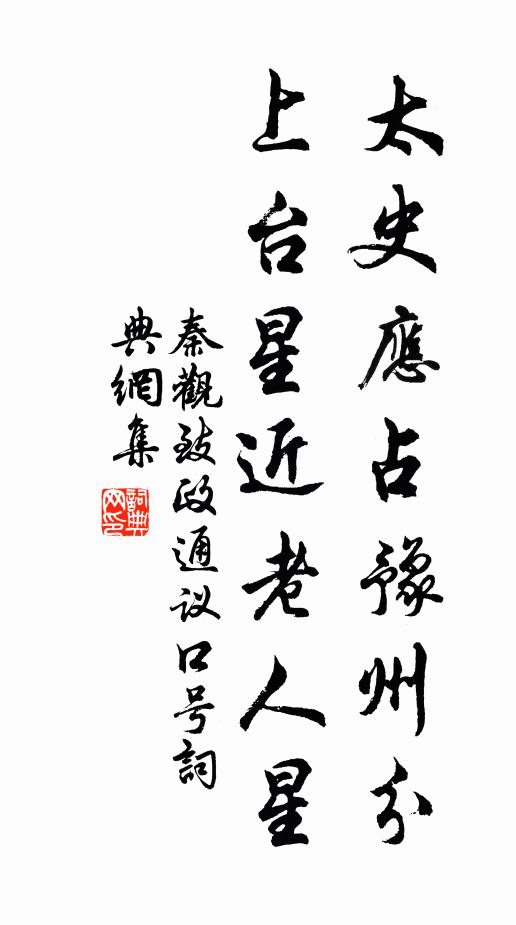 太史應占豫州分
上台星近老人星
秦觀致政通议口号詞
典網集
詞典网印